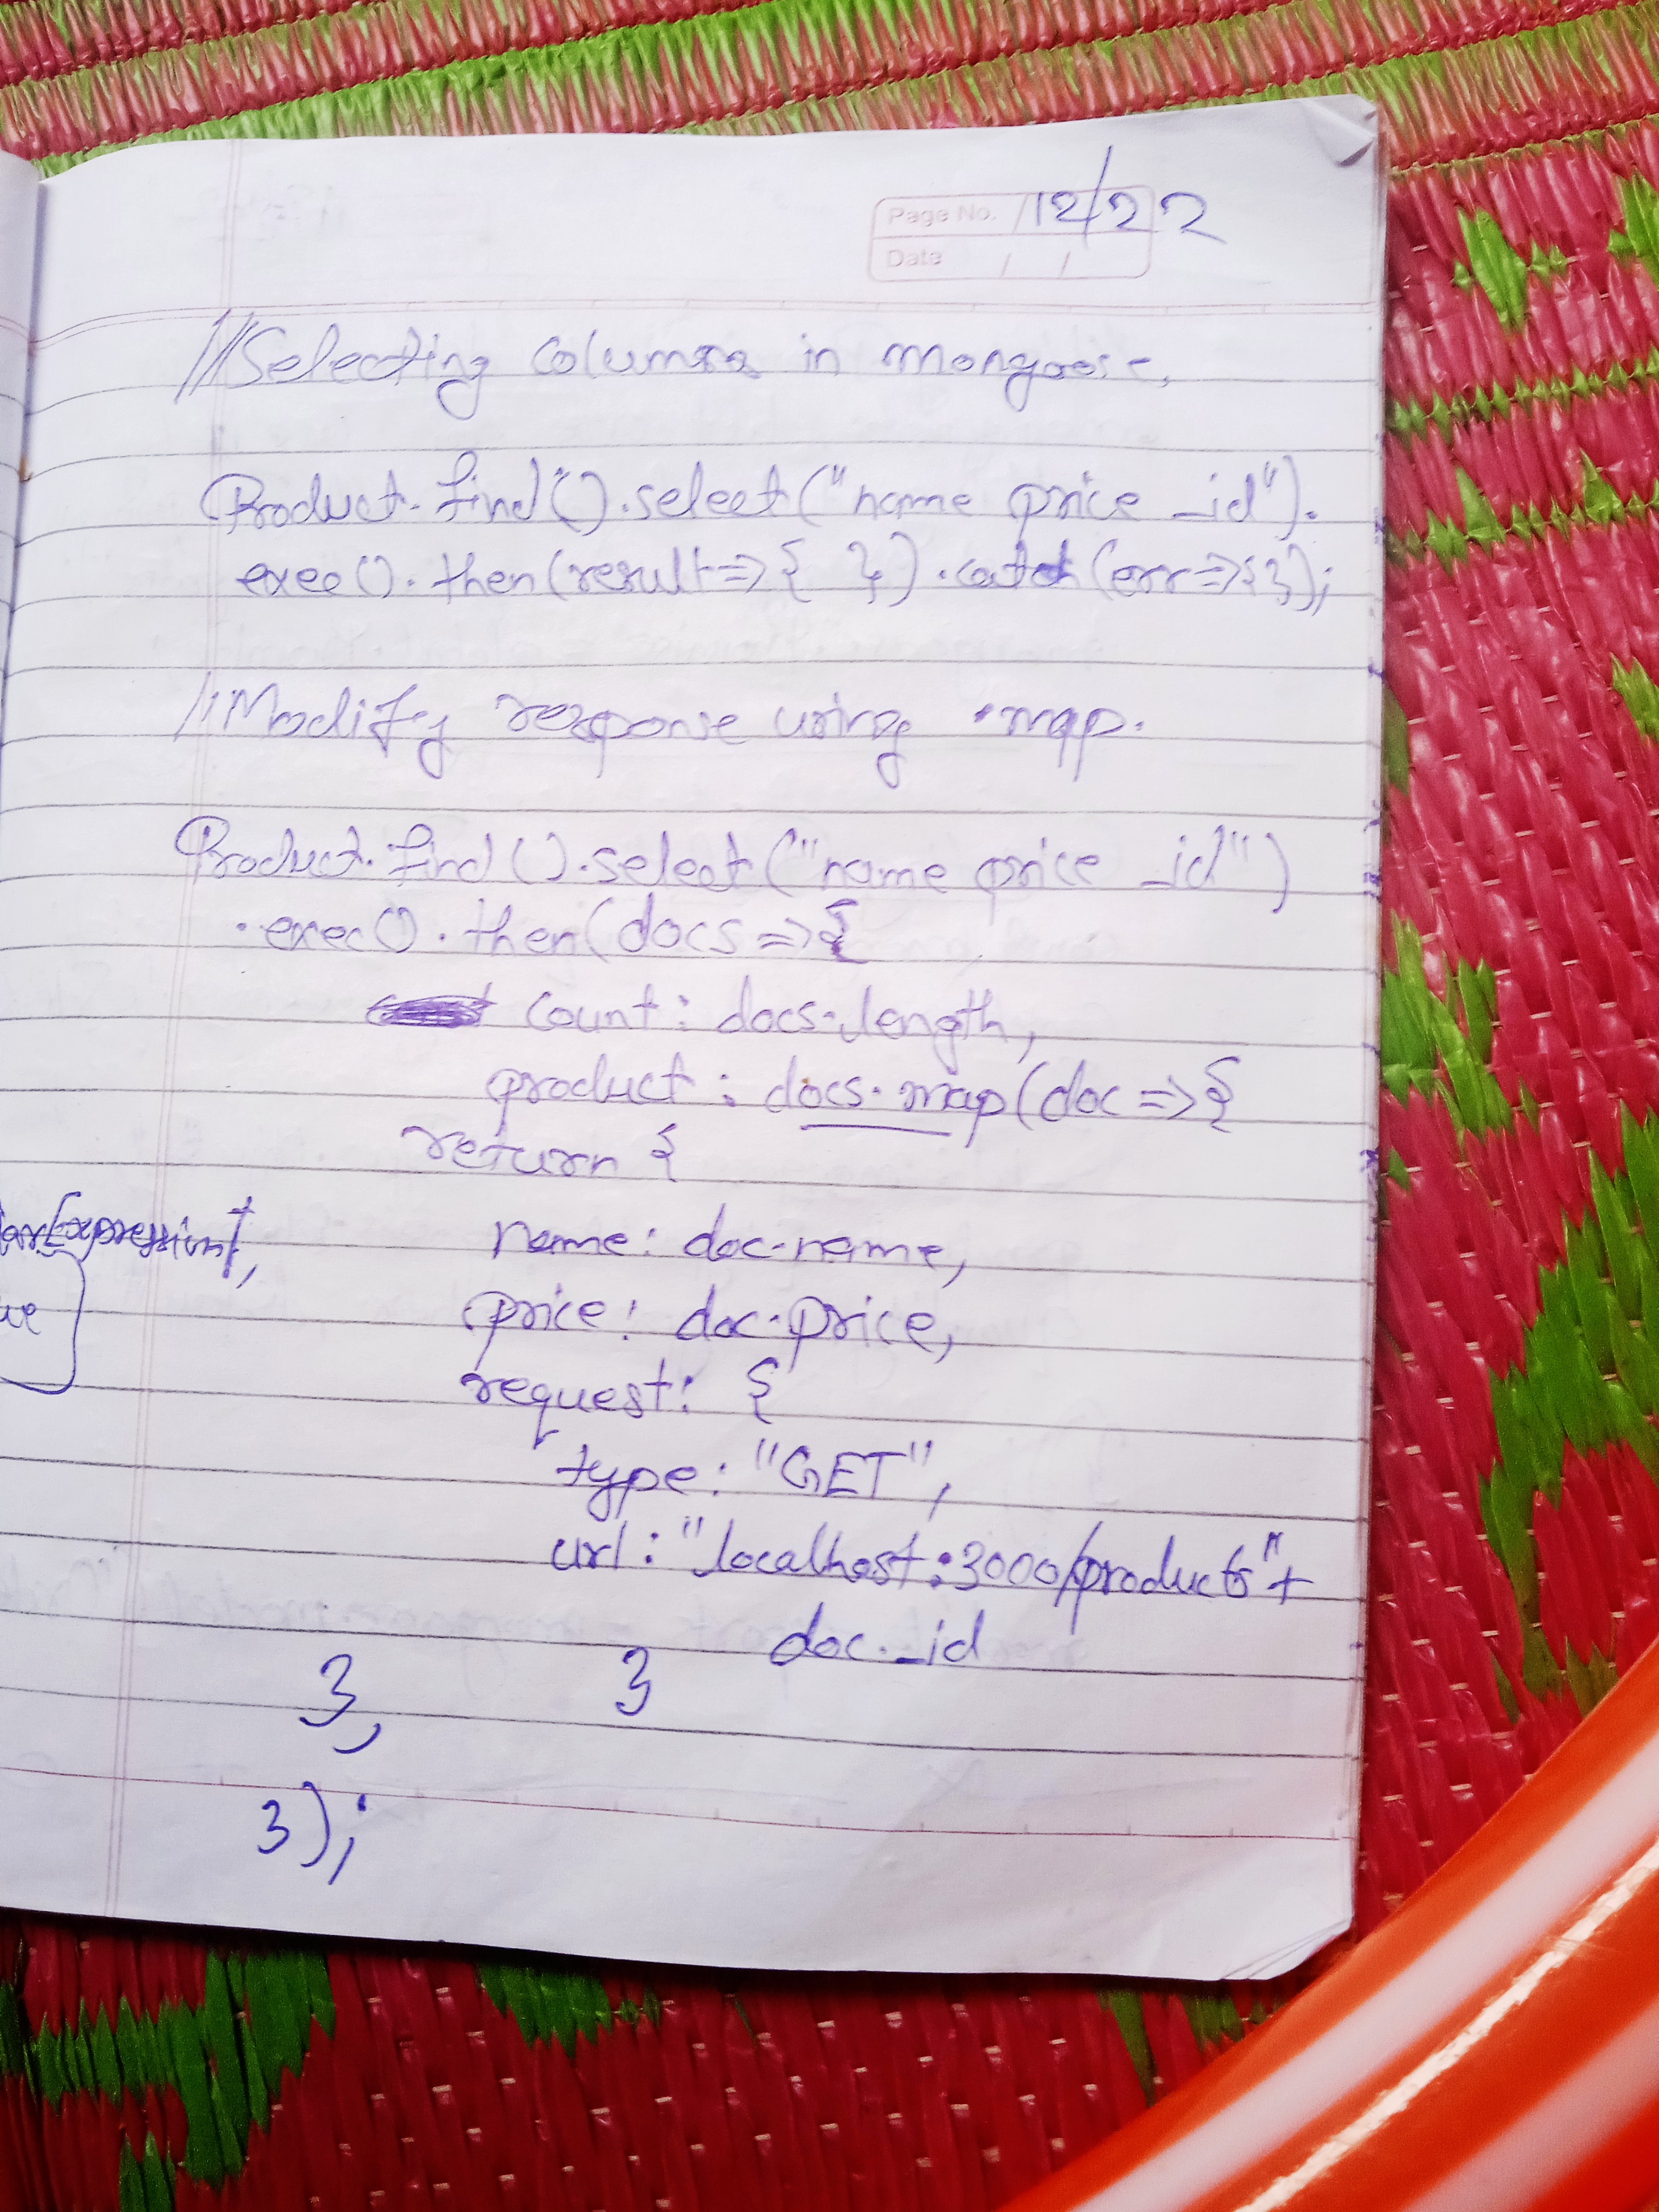 Page No. /12/22
Date / /
//Selecting columns in mongoose.
Product.find().select("name price _id").
exec().then(result=>{ }).catch(err=>{});
//Modify response using .map.
Product.find().select("name price _id")
.exec().then(docs=>{
count: docs.length,
product: docs.map(doc=>{
return {
name: doc.name,
price: doc.price,
request: {
type: "GET",
url: "localhost:3000/products"+
doc._id
}, }
});
arExpression,